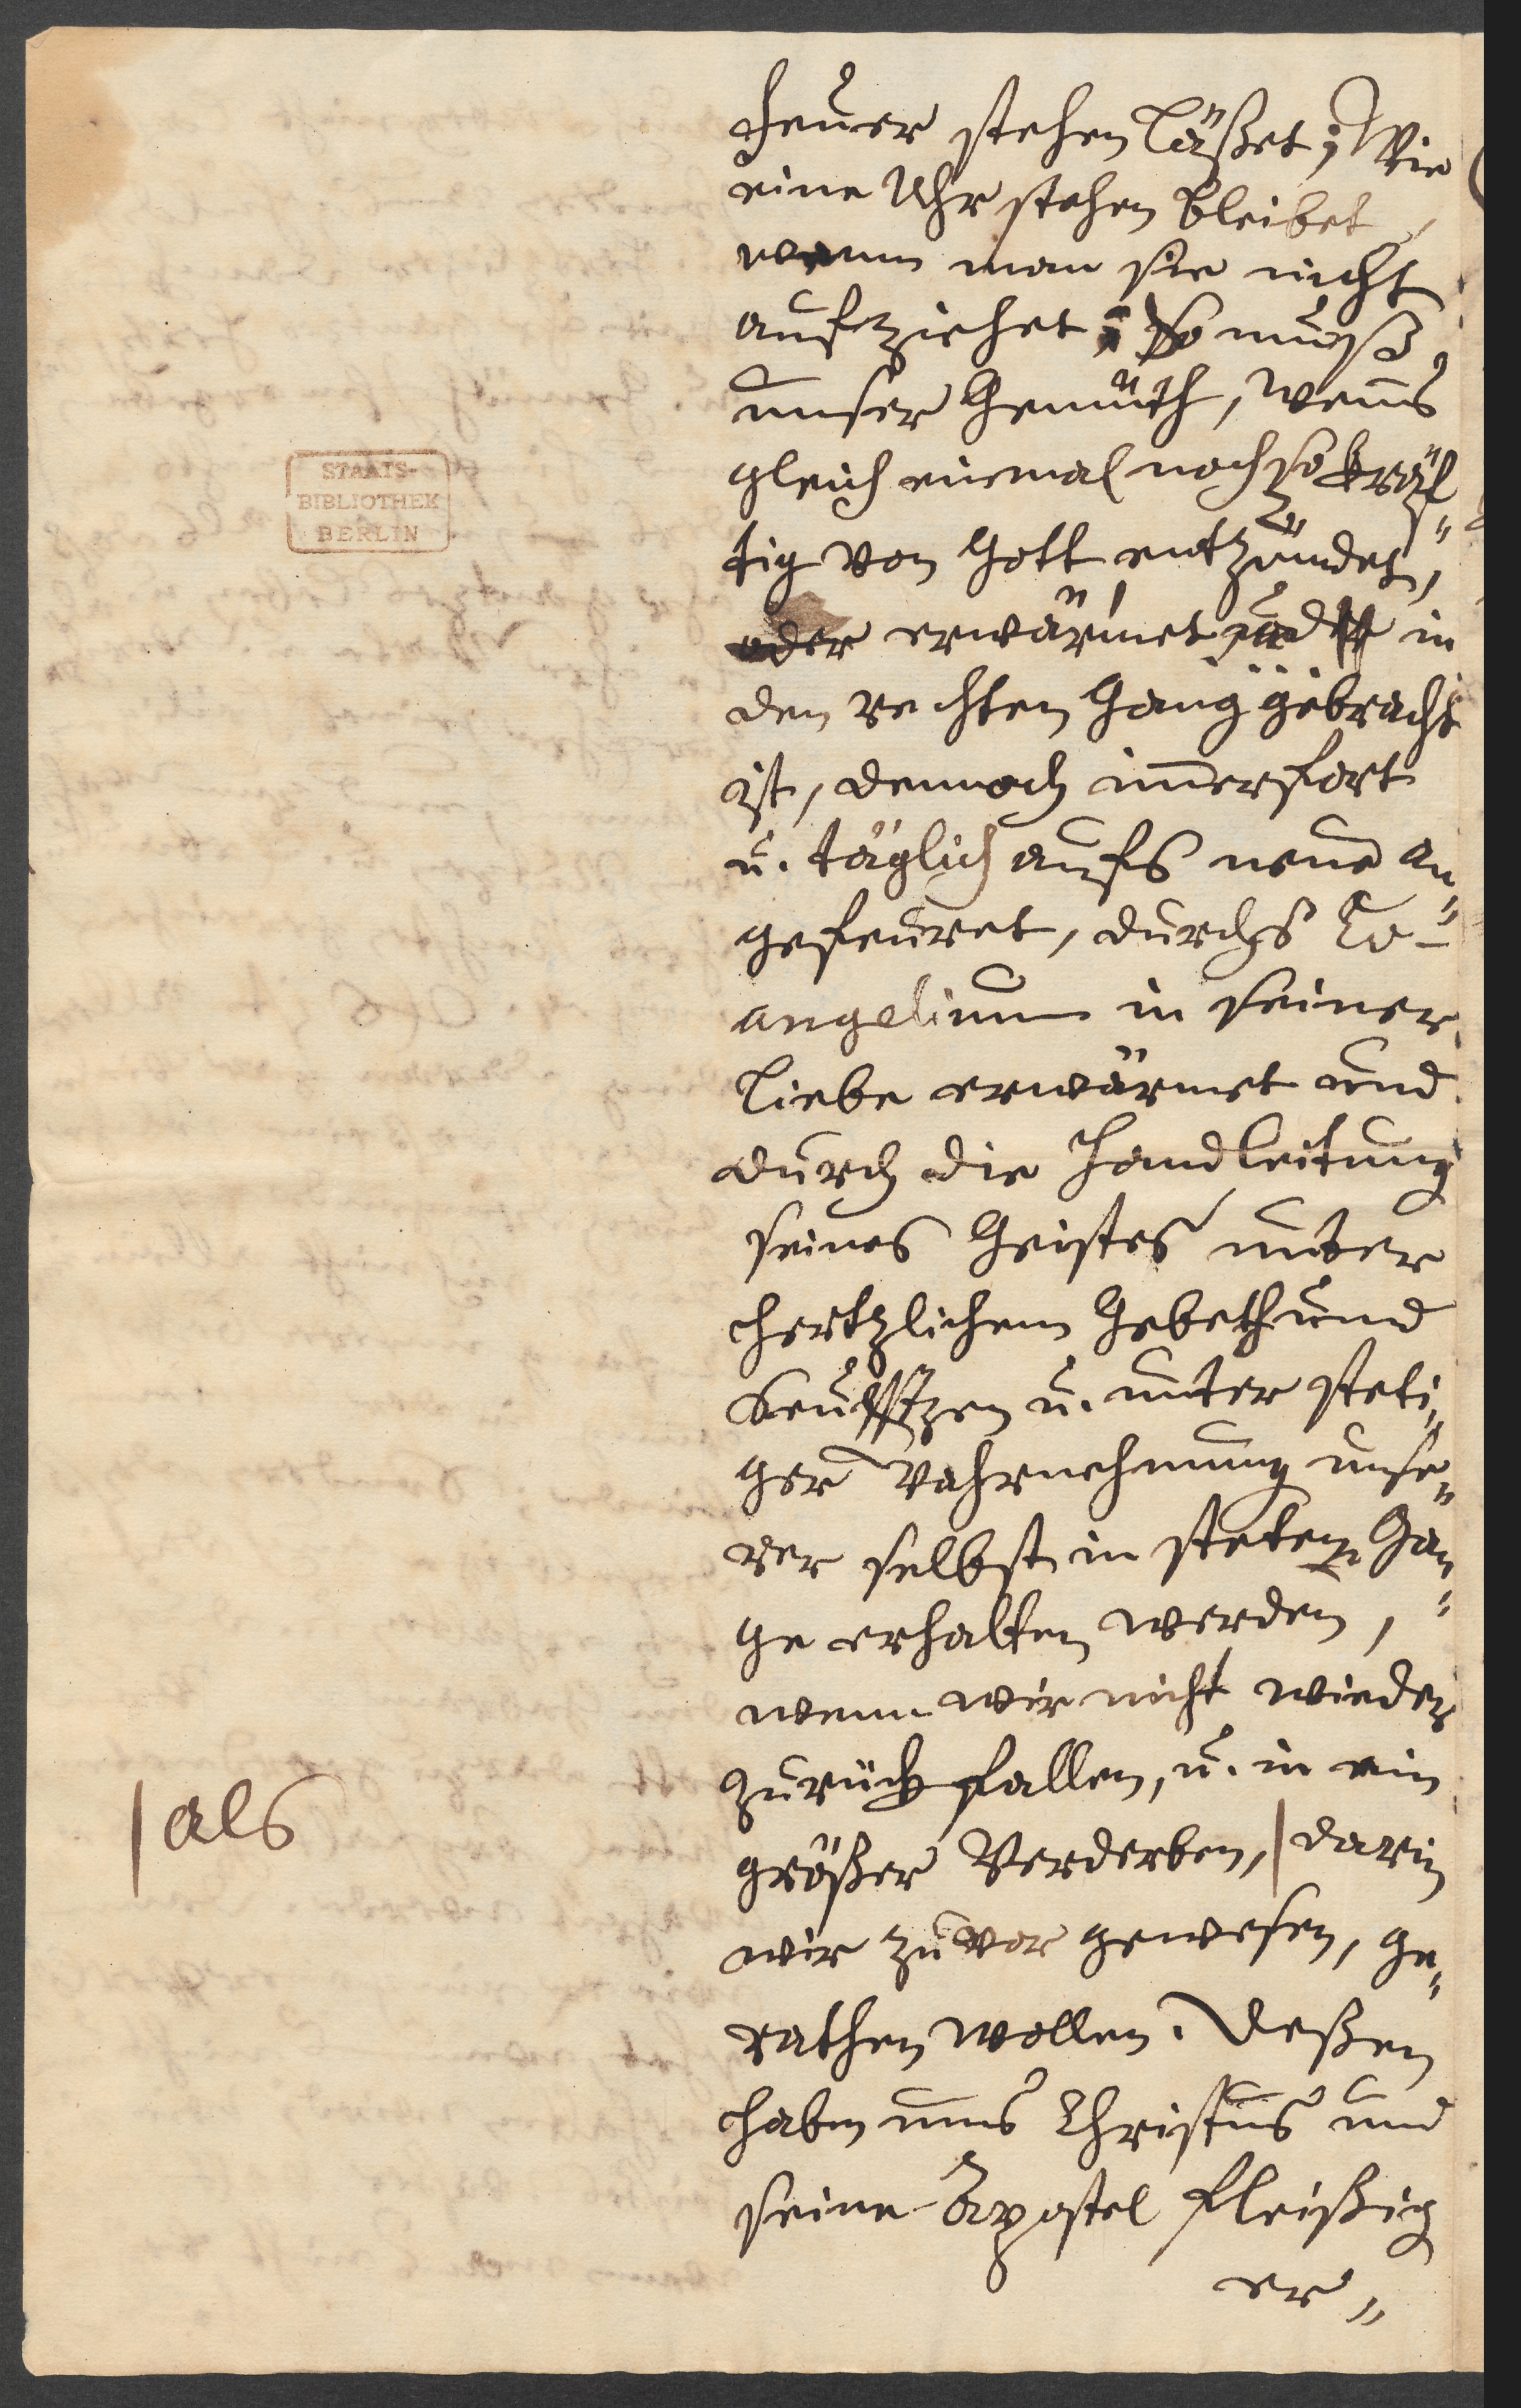 Feuer stehen läßet; Wie
eine Uhr stehen bleibet,
wenn man sie nicht
aufziehet; So muß
unser Gemüth, wenns
gleich einmal noch so kräf„
tig von Gott entzündet,
oder erwärmet, in
den rechten Gang gebracht
ist, dennoch im̄erfort
u. täglich aufs neue an„
gefeuret, durchs Ev-
angelium in seiner
Liebe erwärmet und
durch die Handleitung
seines Geistes unter
hertzlichem Gebeth und
Seufftzen u. unter steti„
ger Wahrnehmung unse„
rer selbst in stetem Gan„
ge erhalten werden,
wenn wir nicht wieder
zurück fallen, u. in ein
größer Verderben, | darin
| als
wir zuvor gewesen, ge„
rathen wollen. Deßen
haben uns Christus und
seine Apostel fleißig
er„
STAATS-
BIBLIOTHEK
BERLIN